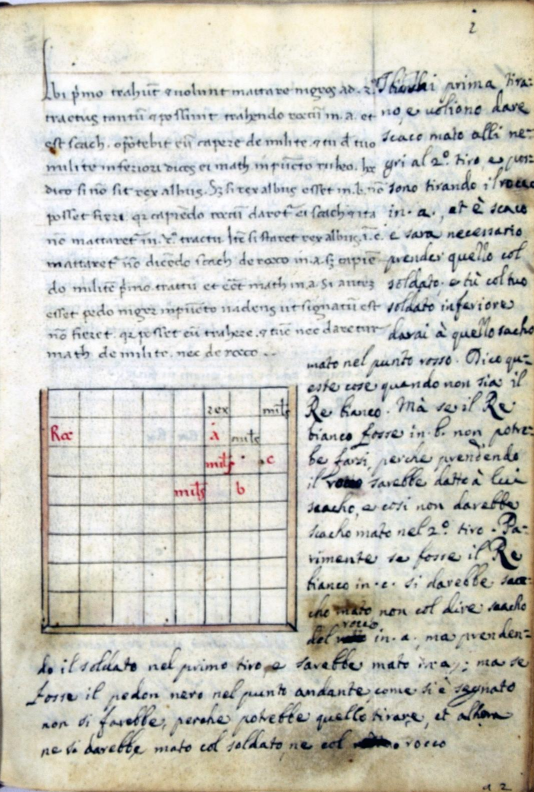 2
Ibi p̄mo trahūt & volunt mattare nigros ad. 2.
tractus tantū & possunt trahendo roccū in. a. et
est scach. oportebit eū capere de milite. & tu d̄ tuo
milite inferiori dices ei math in pūcto rubeo. hec
dico si nō sit rex albus. Sz si rex albus esset in. b. nō
posset fieri. qr capiēdo roccū daret ei scach & ita
nō mattaret in. 2. tractu. Ite si staret rex albus. i. c.
mattaret nō dicēdo scach de rocco in. a. sz capie
do milite p̄mo tractu et eēt math in. a. Si autez
esset pedo niger in pūcto vadens ut signatū est
nō fieret. qr posset eū trahere. & tūc nec daretur
math de milite. nec de rocco ..
I bianchi prima tira-
no, e voliono dare
scaco mato alli ne-
gri al 2º. tiro e pos-
sono tirando il rocco
in. a., et è scaco
e sara necessario
prender quello col
soldato. e tù col tuo
soldato inferiore
darai à quello scacho
mato nel punto rosso. Dico qu-
este cose quando non sia il
Re bianco. Mà se il Re
bianco fosse in. b. non potre-
be farsi, perche prendendo
il rocco sarebbe datto à lui
scacho, e cosi non darebbe
scacho mato nel 2º. tiro. Pa-
rimente se fosse il Re
bianco in. c. si darebbe sca-
cho mato non col dire scacho
del rocco in. a., ma prenden-
do il soldato nel primo tiro, e sarebbe mato in. a.; ma se
fosse il pedon nero nel punto andante come si è segnato
non si farebbe, perche potrebbe quello tirare, et alhora
ne si darebbe mato col soldato, ne col rocco
rex milꝭ
Roc a milꝭ
milꝭ c
milꝭ b